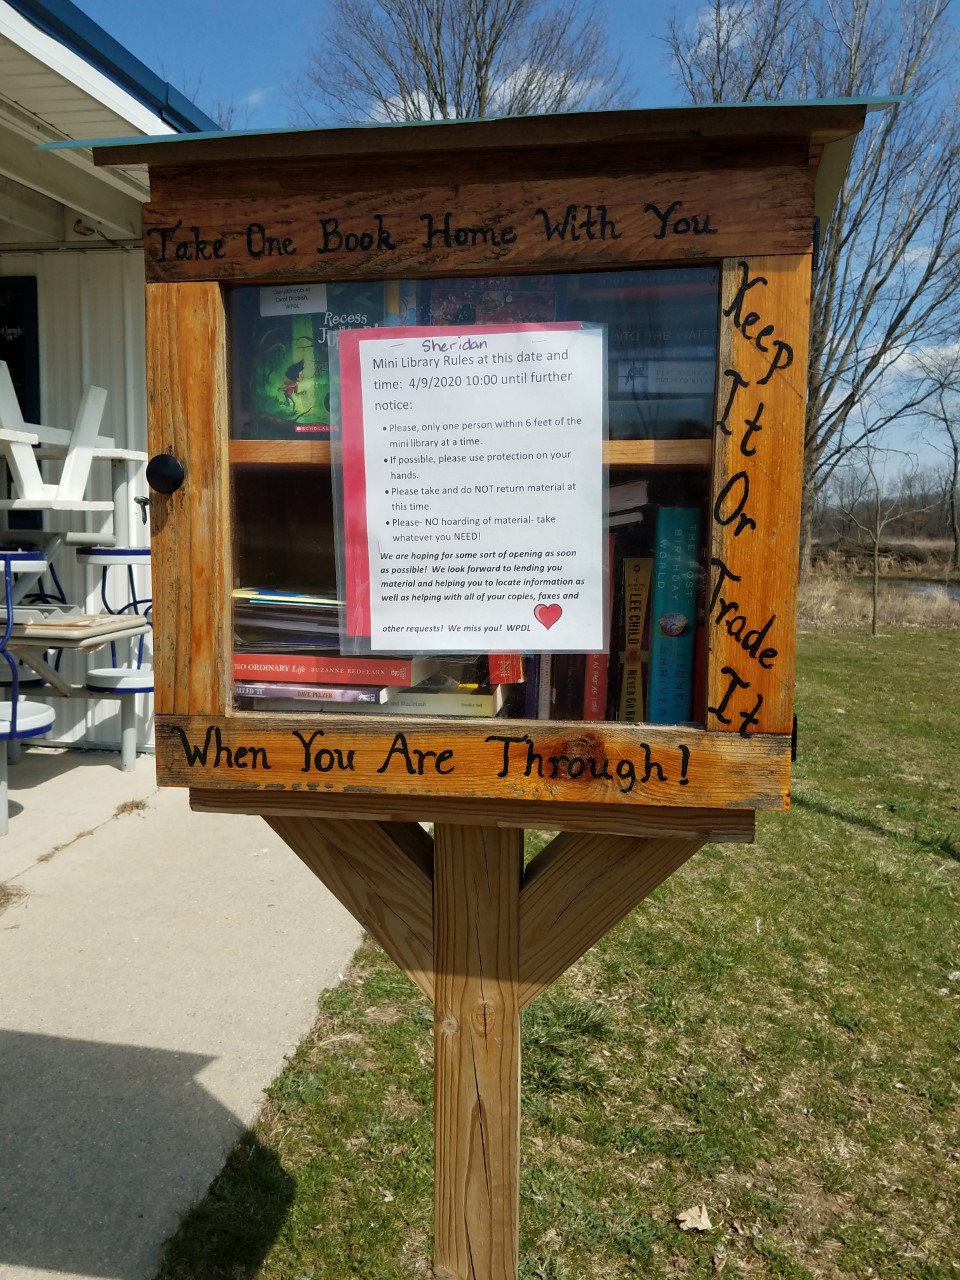 Take One Book Home With You
Keep
It
Or
Trade
It
When You Are Through!
Compliments of
WPDL
Recess
is a
INTO THE
SCHOLASTIC
Sheridan
Mini Library Rules at this date and
time: 4/9/2020 10:00 until further
notice:
• Please, only one person within 6 feet of the
mini library at a time.
• If possible, please use protection on your
hands.
• Please take and do NOT return material at
this time.
• Please- NO hoarding of material- take
whatever you NEED!
We are hoping for some sort of opening as soon
as possible! We look forward to lending you
material and helping you to locate information as
well as helping with all of your copies, faxes and
other requests! We miss you! WPDL
NO ORDINARY Life SUZANNE REDFEARN
DAVE PELZER
LEE CHILD
NEVER GO BACK
THE POST-BIRTHDAY WORLD
LIONEL SHRIVER